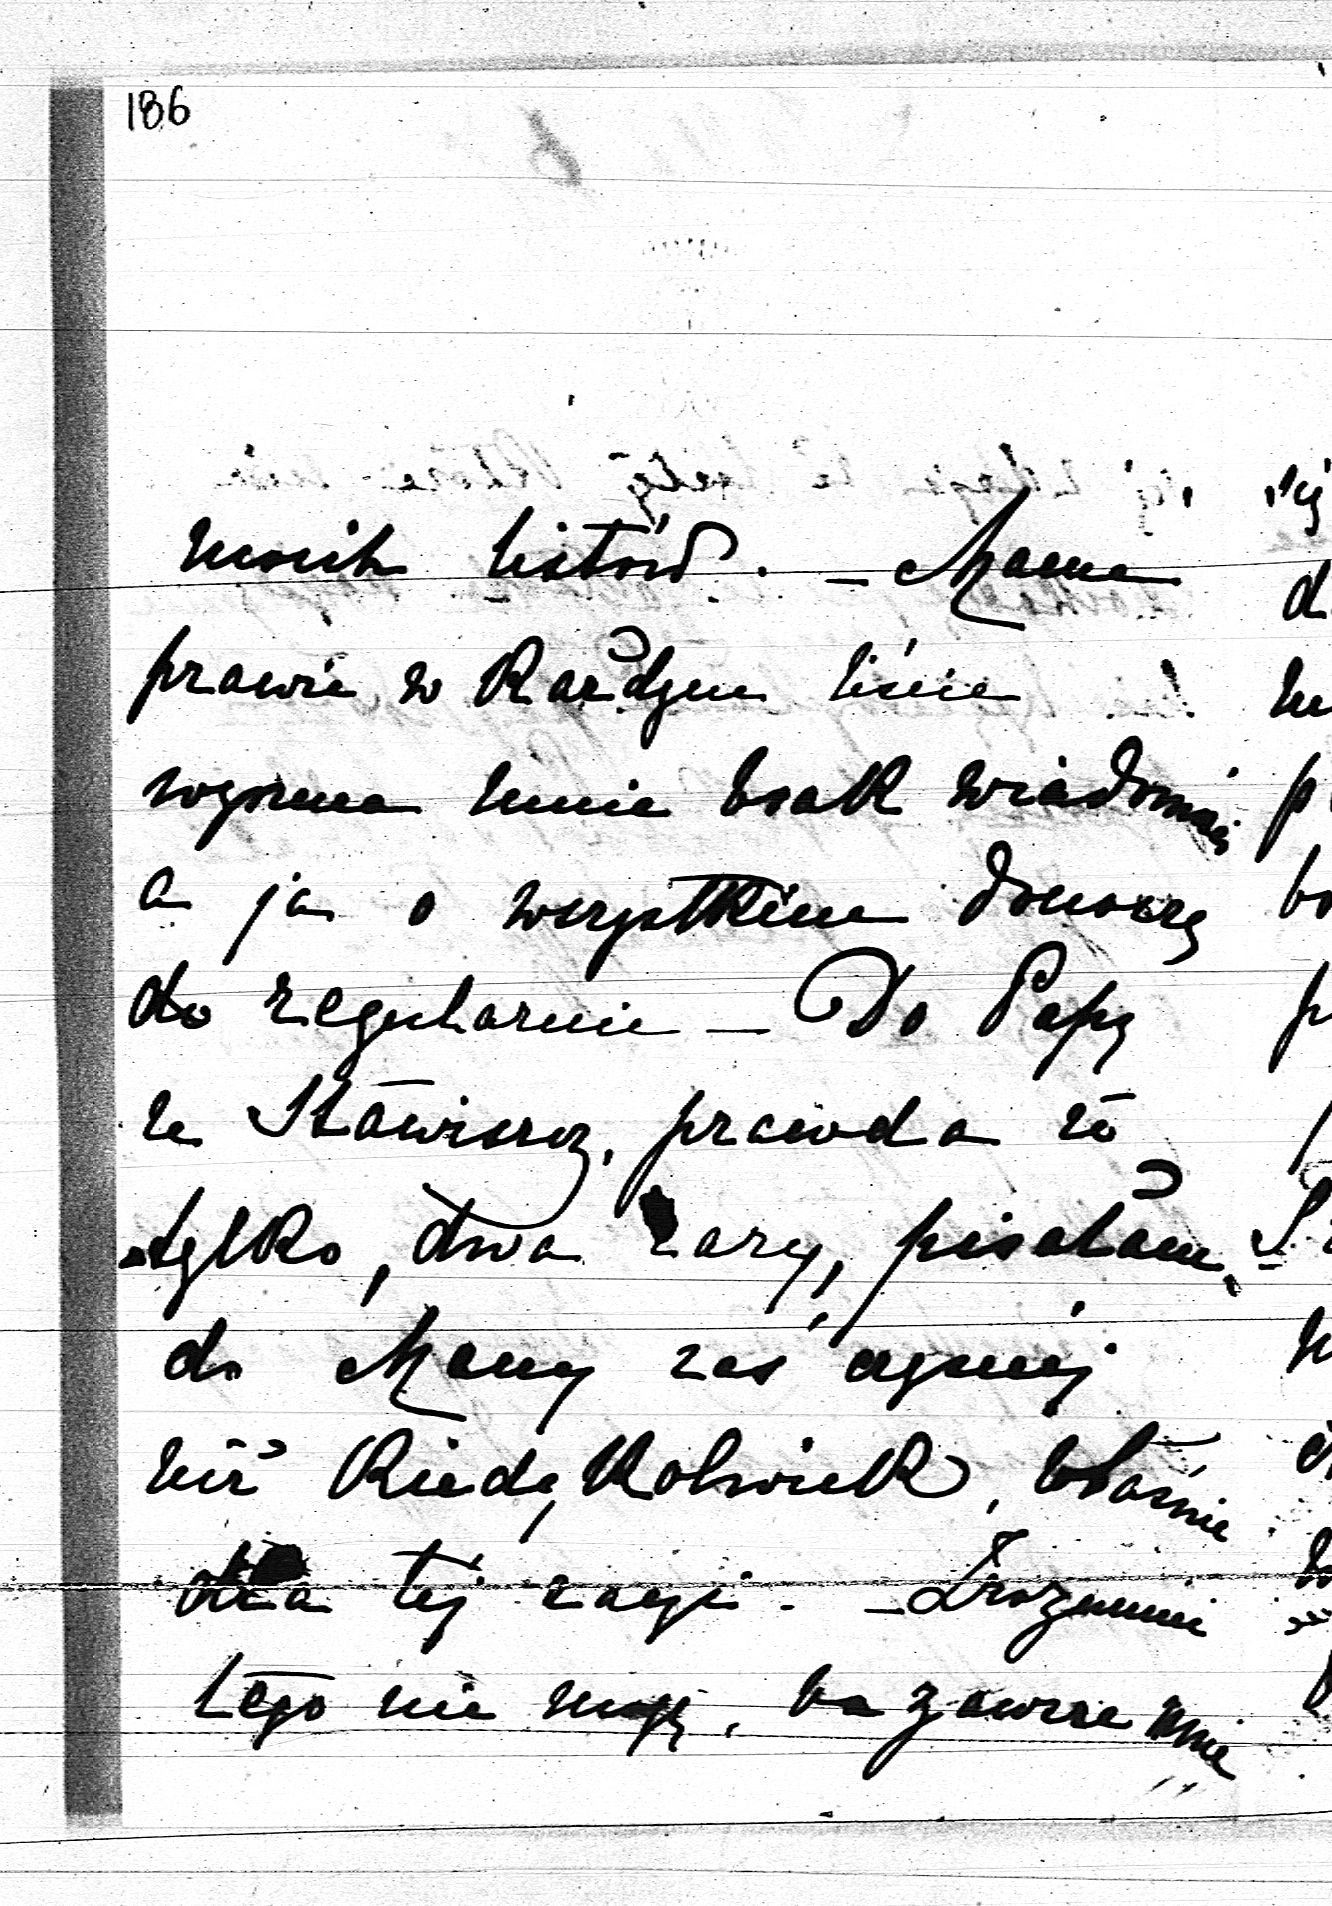 186
moich listów. - Mama
prawie w każdym liście
wypomina mnie brak wiadomości
a ja o wszystkiem donoszę
do regularnie - Do Papy
ze Stawiszcz, prawda że
tylko, dwa razy, pisałam,
do Mamy zaś częściej
niż kiedykolwiek, właśnie
dla tej racji. - Zrozumieć
tego nie mogę, bo zawsze mnie